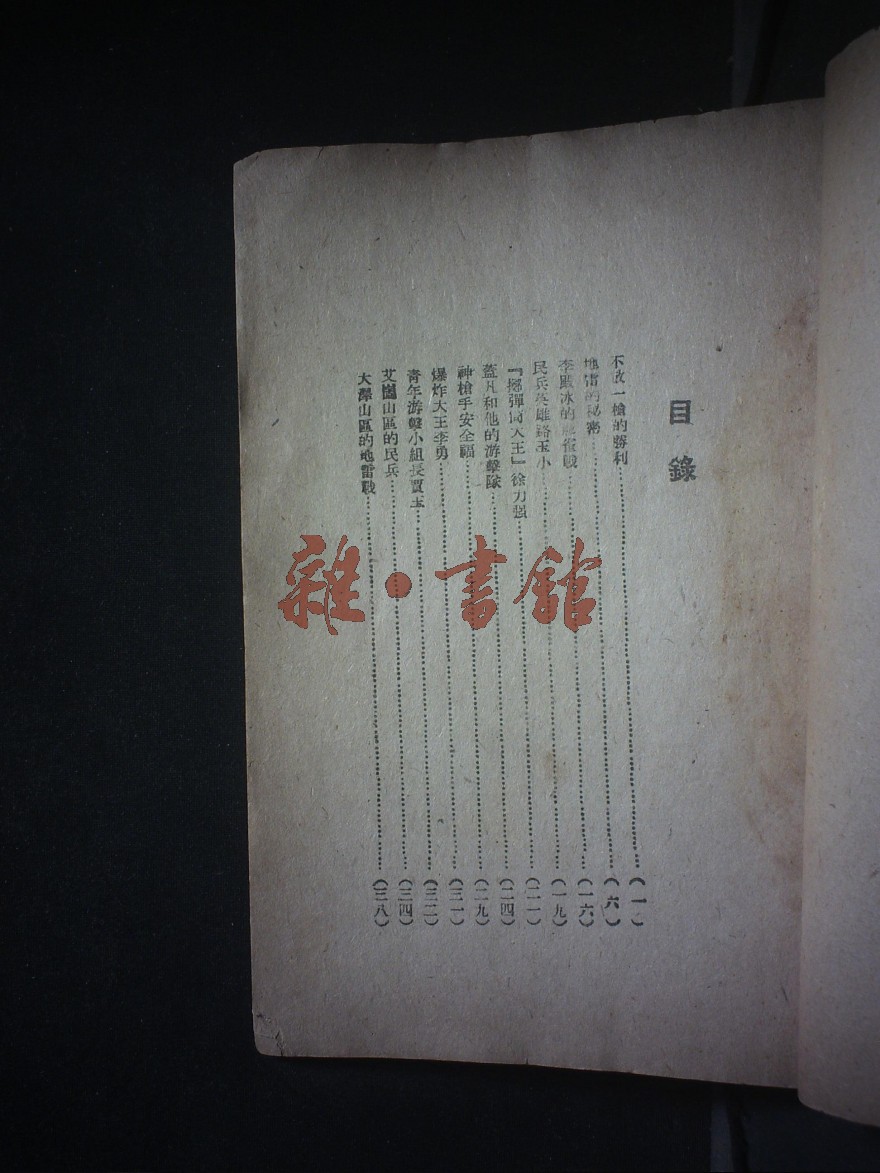 目錄
不放一槍的勝利…………(一)
地雷的秘密…………(六)
李殿冰的麻雀戰…………(一六)
民兵英雄路玉小…………(一九)
『擲彈筒大王』徐力强…………(二一)
蓋凡和他的游擊隊…………(二四)
神槍手安全福…………(二九)
爆炸大王李勇…………(三一)
青年游擊小組長賈玉…………(三二)
艾崮山區的民兵…………(三四)
大澤山區的地雷戰…………(三八)
雜·書館